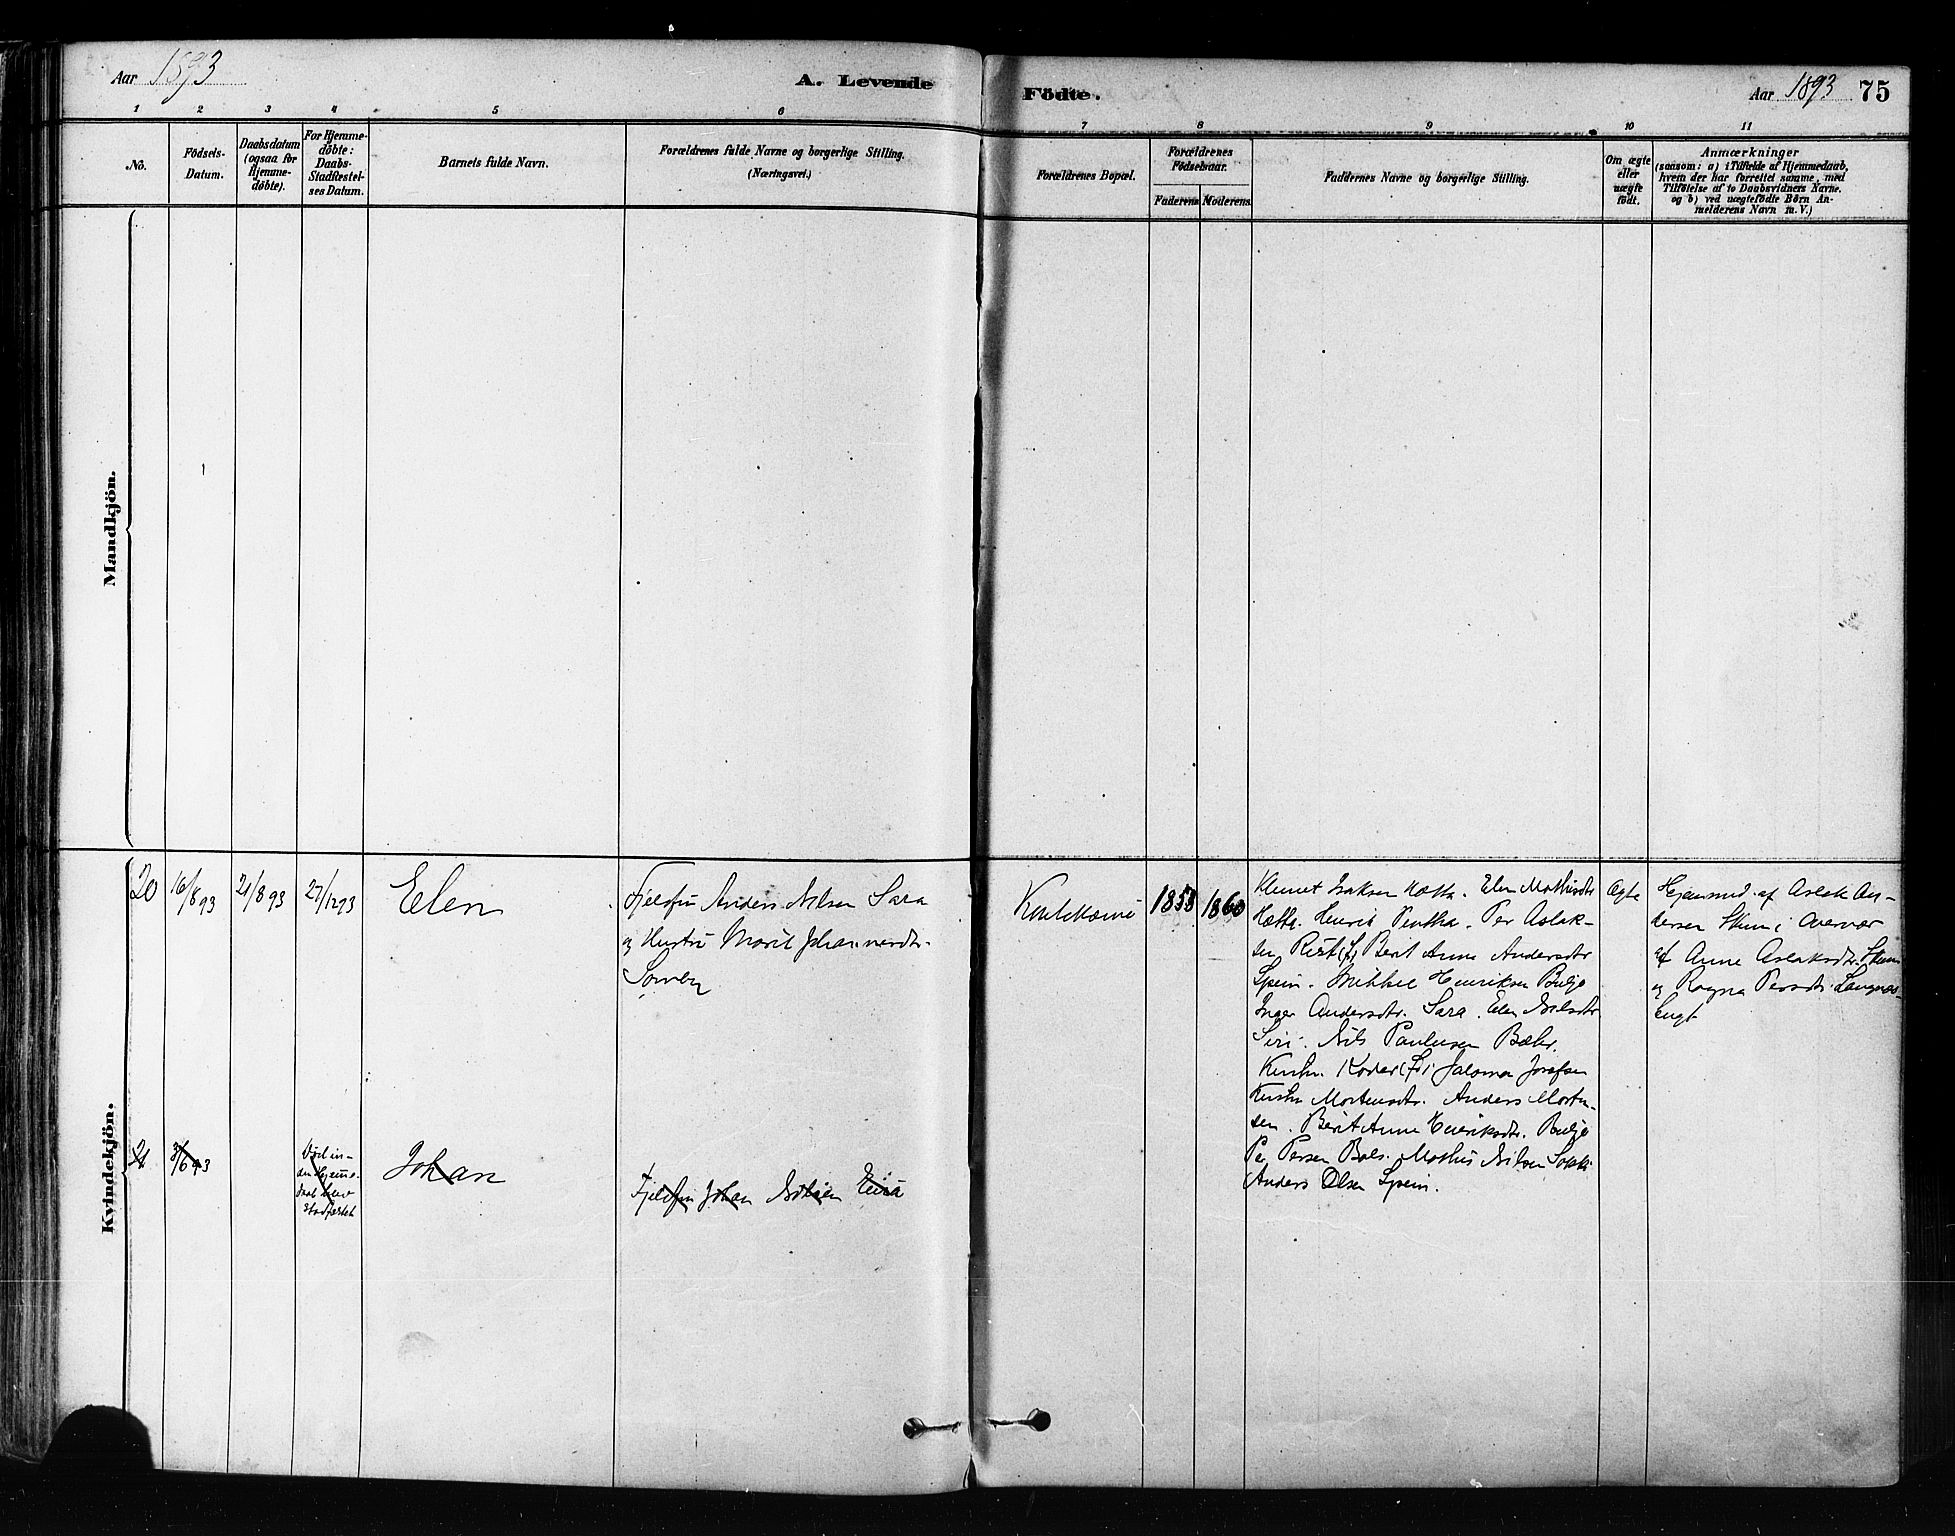 Aar 1893
A. Levende
Födte.
Aar 1893 75
1 2 3 4 5 6 7 8 9 10 11
No.
Födsels-
Datum.
Daabsdatum
(ogsaa for
Hjemme-
döbte).
For Hjemme-
döbte:
Daabs-
Stadfæstel-
ses Datum.
Barnets fulde Navn.
Forældrenes fulde Navne og borgerlige Stilling.
(Næringsvei.)
Forældrenes Bopæl.
Forældrenes
Födselsaar.
Faderens Moderens
Faddernes Navne og borgerlige Stilling.
Om ægte
eller
uægte
født.
Anmærkninger
(saasom: a) i Tilfælde af Hjemmedaab,
hvem der har forrettet samme, med
Tilföielse af to Daabsvidners Navne.
og b) ved uægtefödte Börn An-
melderens Navn m. V.)
Mandkjön.
Kvindekjön.
20
16/8 93
21/8 93
27/12 93
Elen
Fjeldfin Anders Nilsen Sara
og Hustru Marit Johannesdtr.
Somby
1853
1860
Klemet Isaksen Hætta. Elen Mathisdtr
Hætta. Henrik Pentha. Per Aslak-
sen Berit Anne Andersdtr
Spein. Mikkel Henriksen Buljo
Inger Andersdtr. Sara. Elen Nilsdtr
Siri. Nils Paulusen Bæhr.
Salomon Josefsen
Mortensdtr. Anders Morten-
sen. Berit Anne Henriksdtr. Buljo
Per Persen Bals. Mathis Nilsen
Anders Olsen Spein.
Ægte
Hjemmed. af Aslak An-
dersen Skum i
af Anne Aslaksdtr. Skum
og Ragna Persdtr. Langnæs-
21
8/6 93
Johan
Fjeldfin Johan